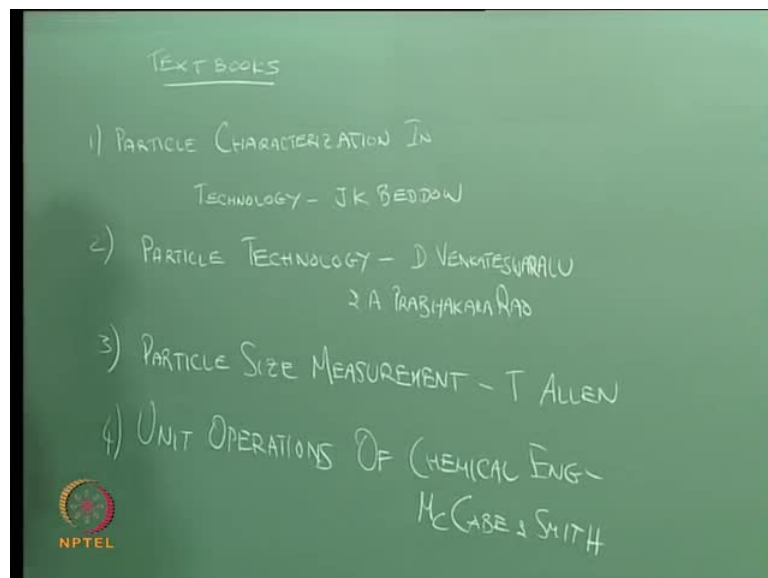 TEXT BOOKS
1) PARTICLE CHARACTERIZATION IN
TECHNOLOGY - JK BEDDOW
2) PARTICLE TECHNOLOGY - D VENKATESWARALU
& A PRABHAKARA RAO
3) PARTICLE SIZE MEASUREMENT - T ALLEN
4) UNIT OPERATIONS OF CHEMICAL ENG -
McCABE & SMITH
NPTEL